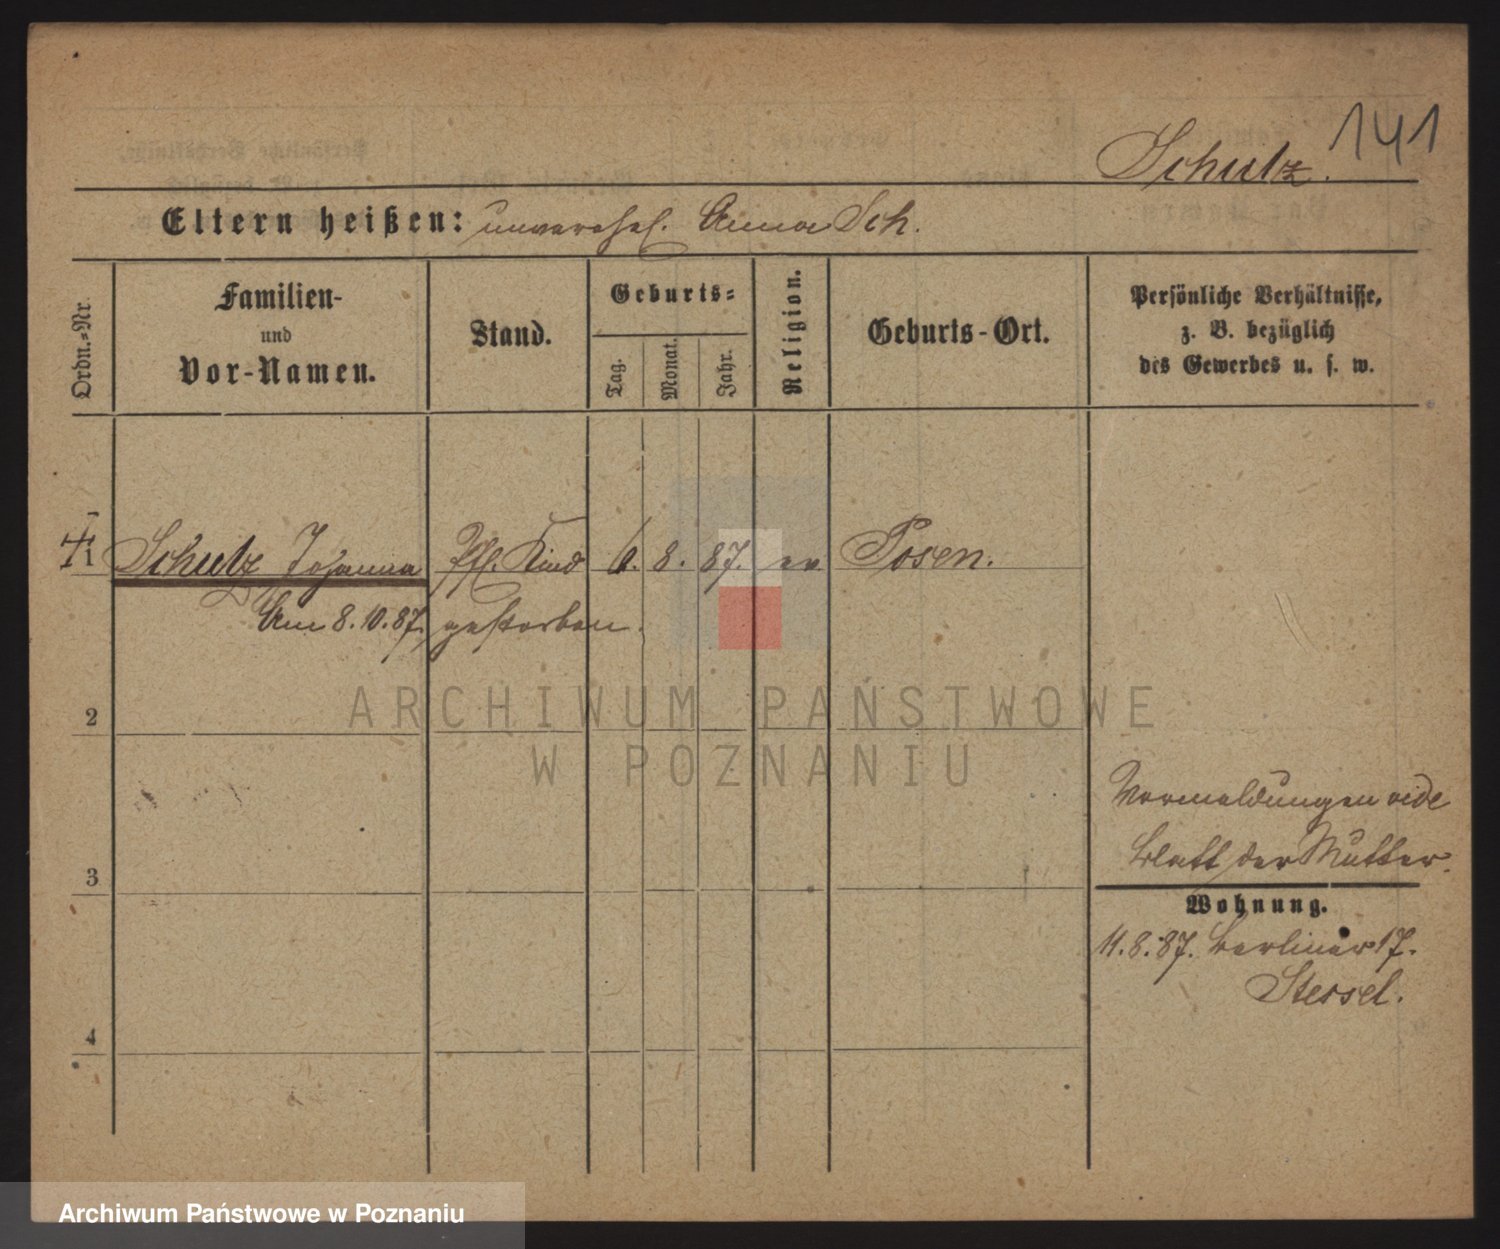 141
Schulz.
Eltern heißen: unverehel. Anna Sch.
Ordn.-Nr.
Familien-
und
Vor-Namen.
Stand.
Geburts-
Tag.
Monat.
Jahr.
Religion.
Geburts-Ort.
Persönliche Verhältnisse,
z. B. bezüglich
des Gewerbes u. s. w.
1 Schulz Johanna Pfl. Kind 6. 8. 87. ev. Posen.
Am 8.10.87. gestorben.
2
3
4
Vormeldungen vide
Blatt der Mutter.
Wohnung.
11.8.87. Berliner 17.
Stessel.
ARCHIWUM PAŃSTWOWE
W POZNANIU
Archiwum Państwowe w Poznaniu